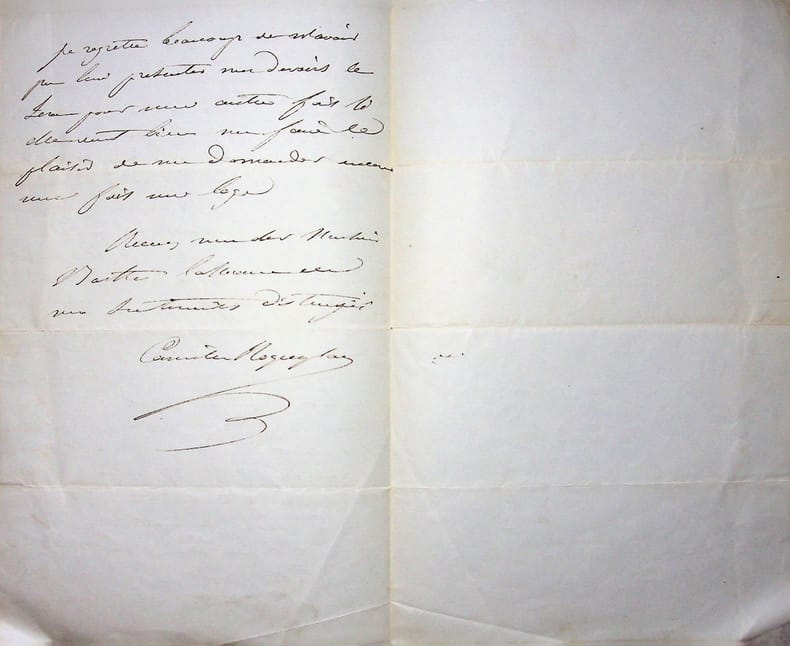 je regrette beaucoup de n'avoir
pu leur présenter mes devoirs ce
sera pour une autre fois si
elle veut bien me faire le
plaisir de me demander encore
une fois une loge
Recevez
l'assurance de
mes sentiments distingués
Camille Roqueplan